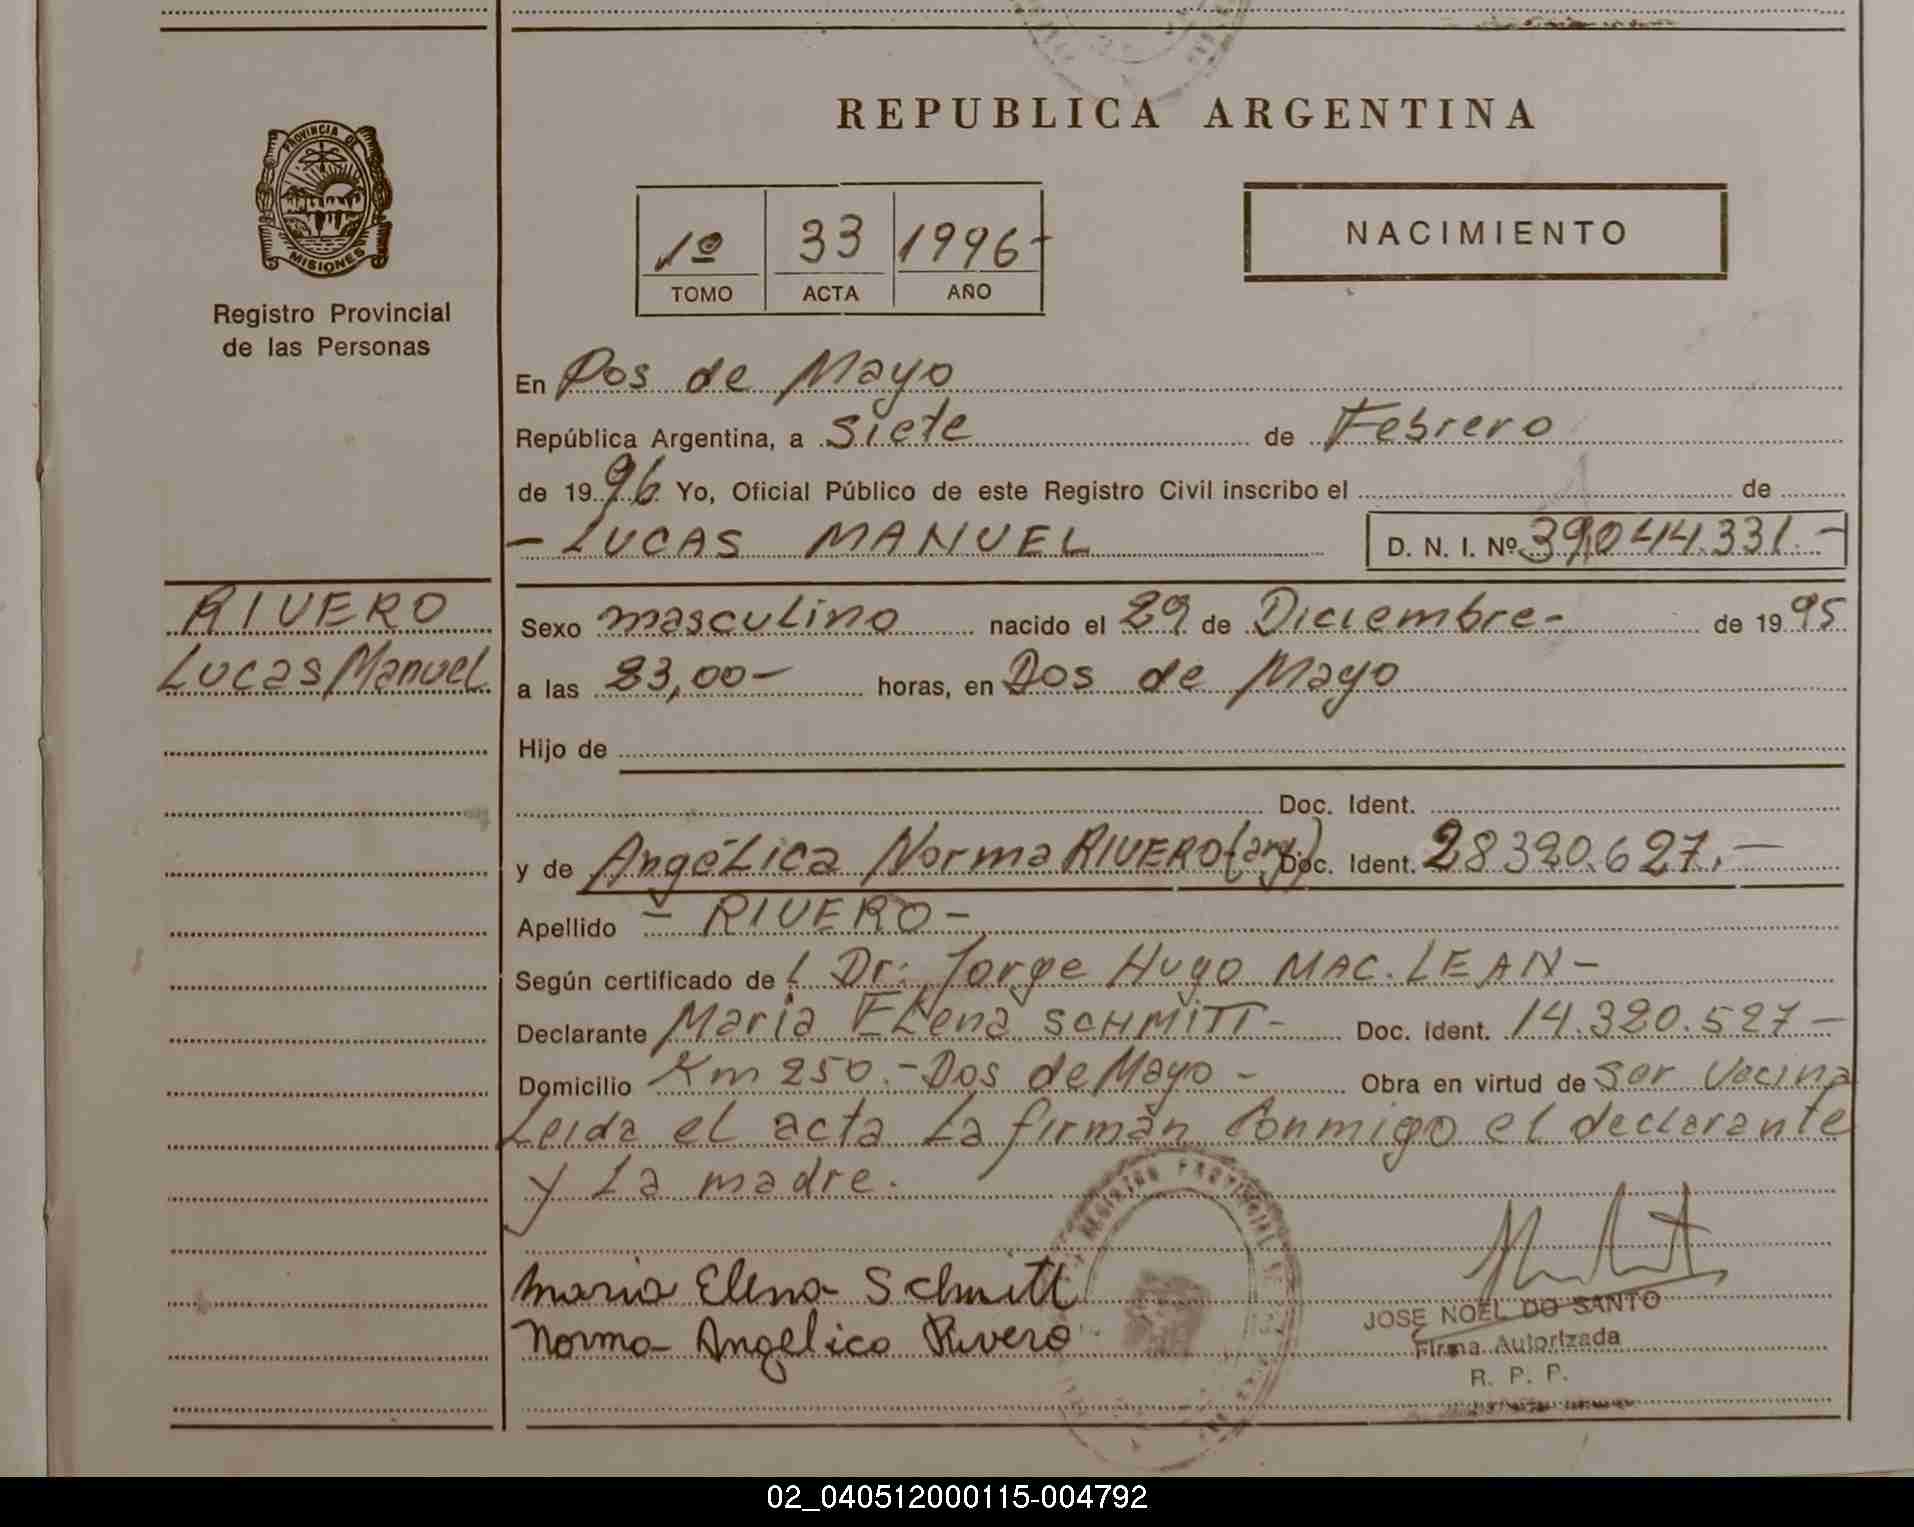 REPUBLICA ARGENTINA
PROVINCIA DE
MISIONES
Registro Provincial
de las Personas
1º 33 1996-
TOMO ACTA AÑO
NACIMIENTO
En Dos de Mayo
República Argentina, a siete de Febrero
de 1996 Yo, Oficial Público de este Registro Civil inscribo el de
- LUCAS MANUEL D. N. I. Nº 39.044.331.-
RIVERO
Lucas Manuel
Sexo masculino nacido el 29 de Diciembre- de 1995
a las 23,00- horas, en Dos de Mayo
Hijo de
Doc. Ident.
y de Angélica Norma RIVERO (arg.) Doc. Ident. 28320.627.-
Apellido - RIVERO -
Según certificado de l Dr. Jorge Hugo MAC. LEAN -
Declarante Maria Elena SCHMITT- Doc. Ident. 14.320.527-
Domicilio Km 250.- Dos de Mayo - Obra en virtud de ser Vecina
Leida el acta La firman Conmigo el declarante
y La madre.
REGISTRO PROVINCIAL
Maria Elena Schmitt
Norma Angelica Rivero
JOSE NOEL DO SANTO
Firma Autorizada
R. P. P.
02_040512000115-004792